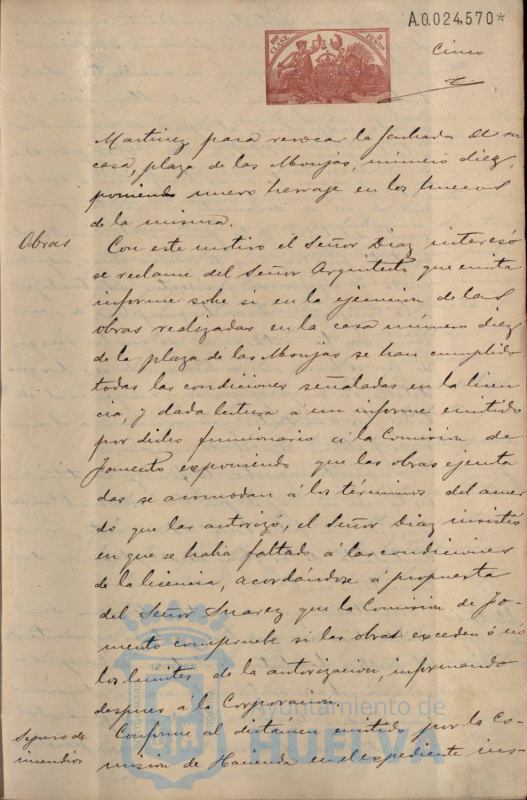 A.0.024.570*
Cinco
10ª CLASE
2 PESETAS
Martinez para revocar la fachada de su
casa, plaza de las Monjas, número diez,
poniendo nuevo herrage en los huecos
de la misma.
Obras
Con este motivo el Señor Diaz interesó
se reclame del Señor Arquitecto que emita
informe sobre si en la ejecucion de las
obras realizadas en la casa número diez
de la plaza de las Monjas se han cumplido
todas las condiciones señaladas en la licen
cia, y dada lectura á un informe emitido
por dicho funcionario á la Comisión de
Fomento exponiendo que las obras ejecuta
das se acomodan á los términos del acuer
do que las autorizó, el Señor Diaz insistió
en que se habia faltado á las condiciones
de la licencia, acordándose á propuesta
del Señor Suarez que la Comisión de Fo-
mento compruebe si las obras exceden ó nó
los limites de la autorizacion, informando
despues á la Corporacion.
Seguro de
incendios
Conforme al dictámen emitido por la Co-
misión de Hacienda en el expediente ins-
Ayuntamiento de
HUELVA